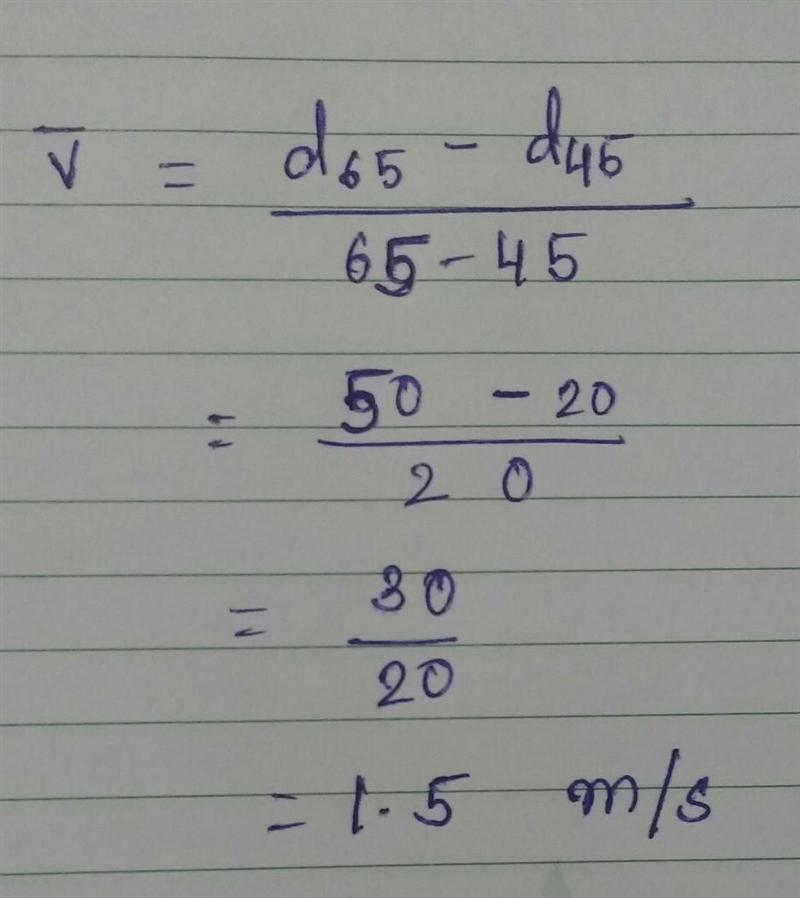 v̅ = d₆₅ - d₄₅
65 - 45
= 50 - 20
20
= 30
20
= 1.5 m/s